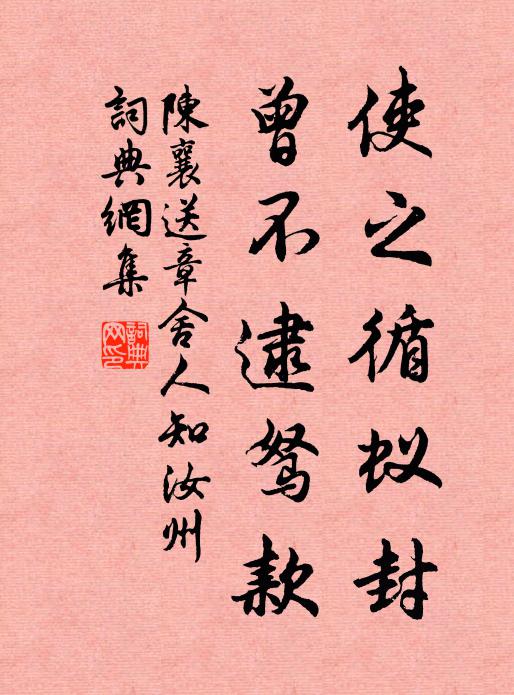 使之循蚁封
曾不逮驽款
陳襄送章舍人知汝州
詞典網集
詞典网印